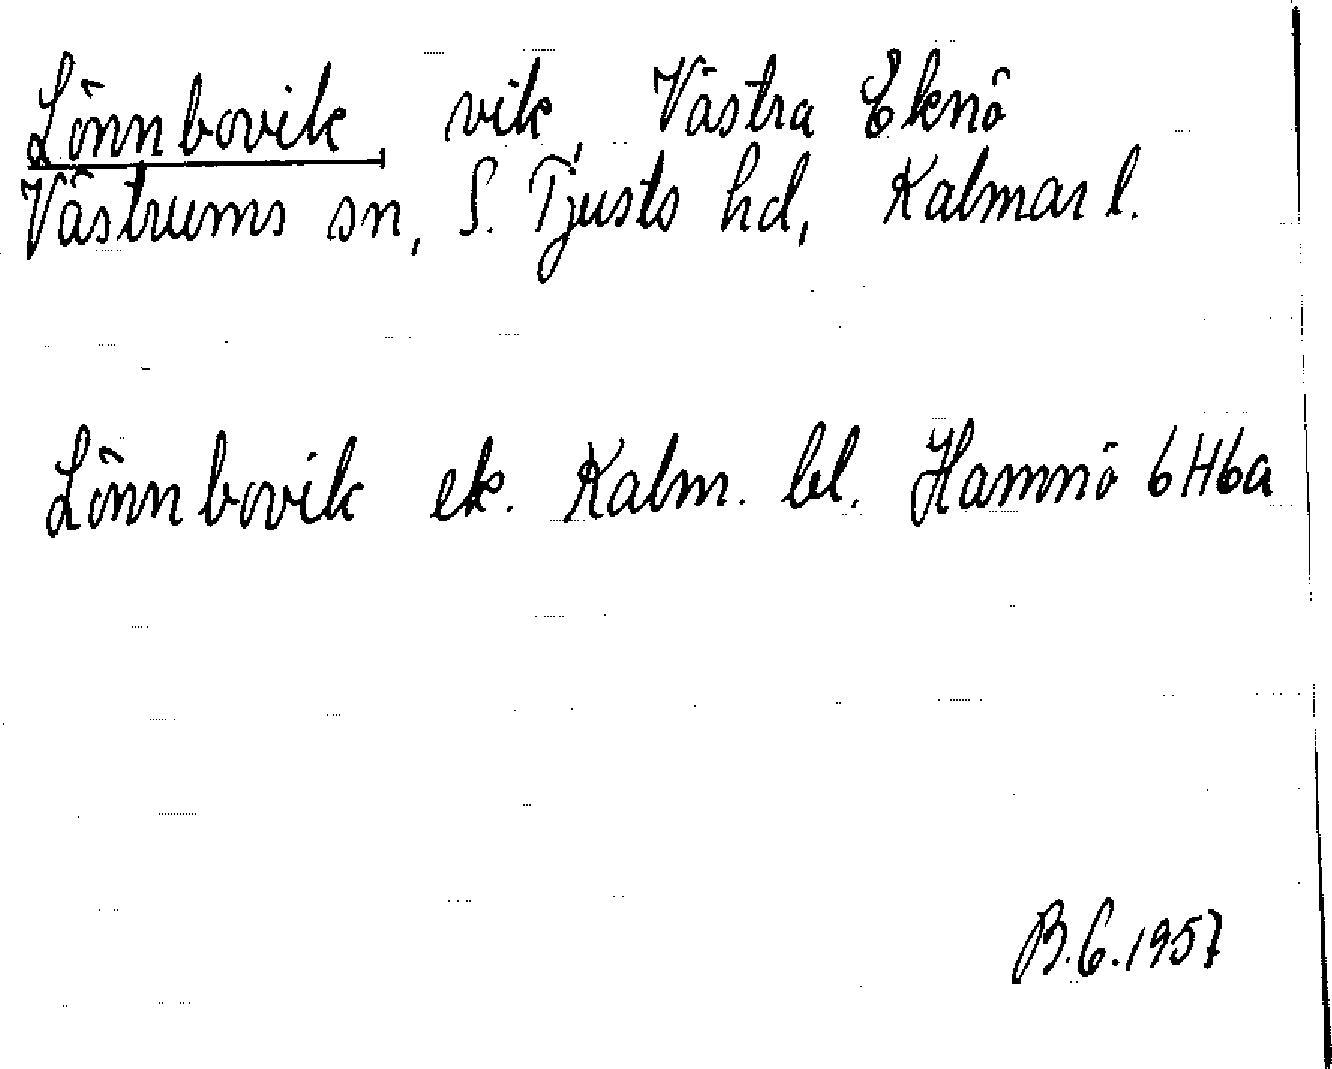 Lönnbovik, vik, Västra Eknö
Västrums sn, S. Tjusts hd, Kalmar l.
Lönnbovik ek. Kalm. bl. Hamnö 6H6a
B.G.1957